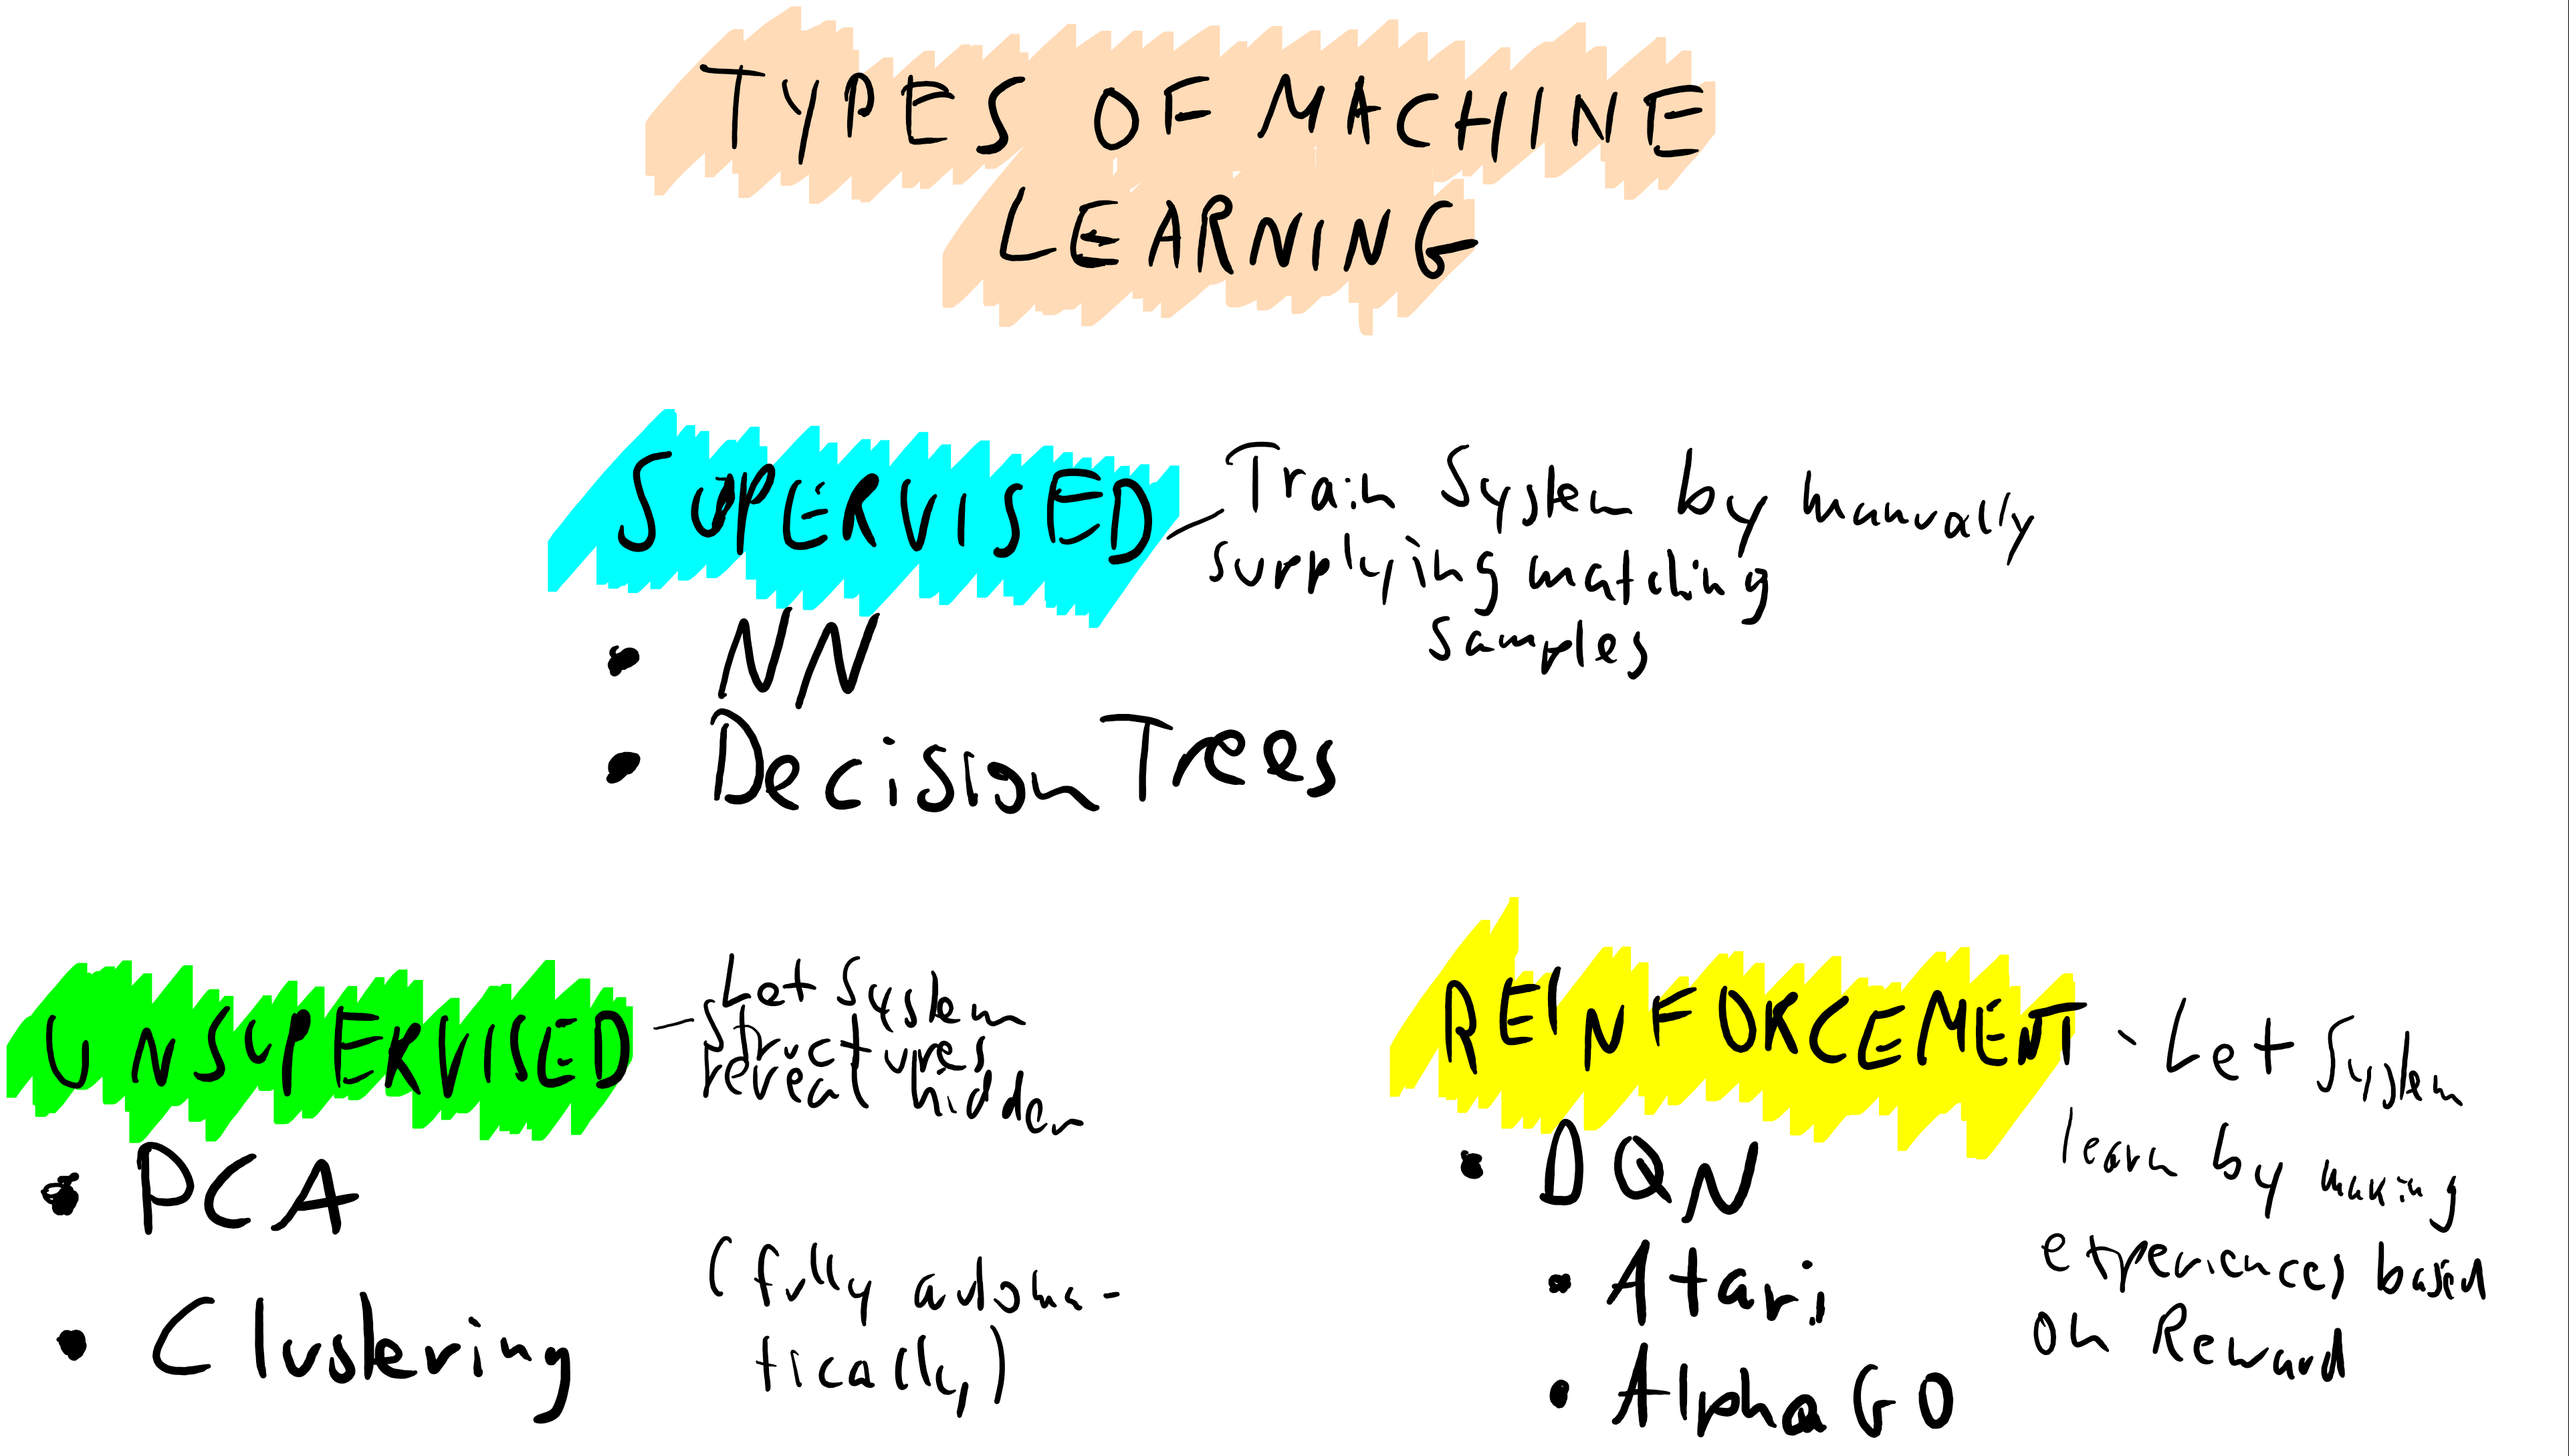 TYPES OF MACHINE
LEARNING
SUPERVISED
Train System by manually
supplying matching
samples
• NN
• Decision Trees
UNSUPERVISED
Let System
structures
reveal hidden
• PCA
• Clustering
(fully automa-
tically)
REINFORCEMENT
Let System
learn by making
experiences based
on Reward
• DQN
• Atari
• AlphaGO